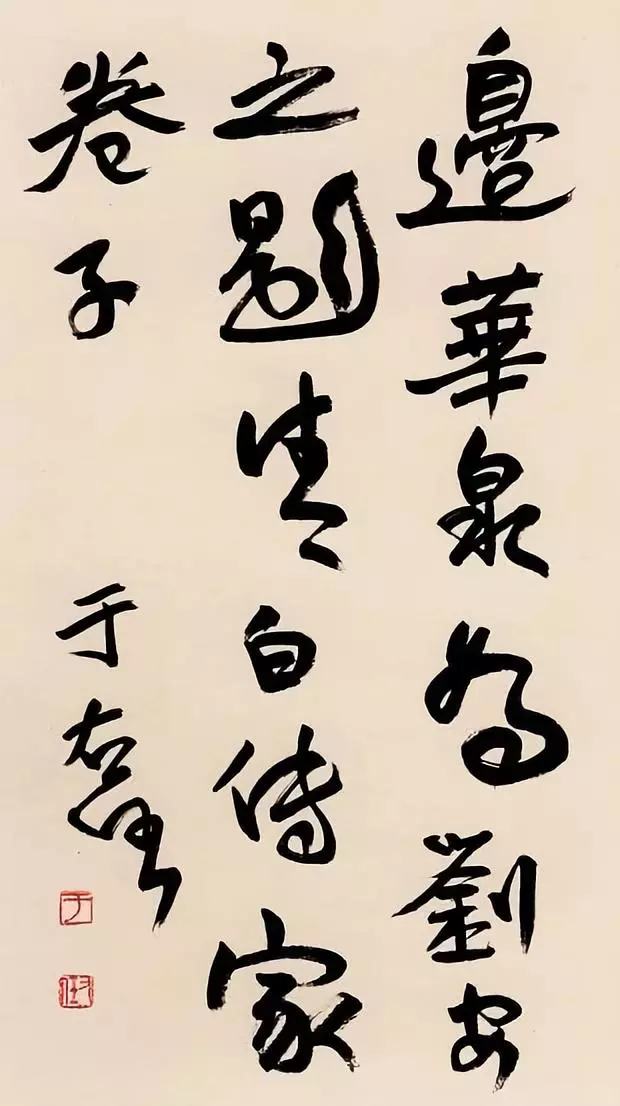 邊華泉為劉安
之題清白傳家
卷子
于右任
于
右任